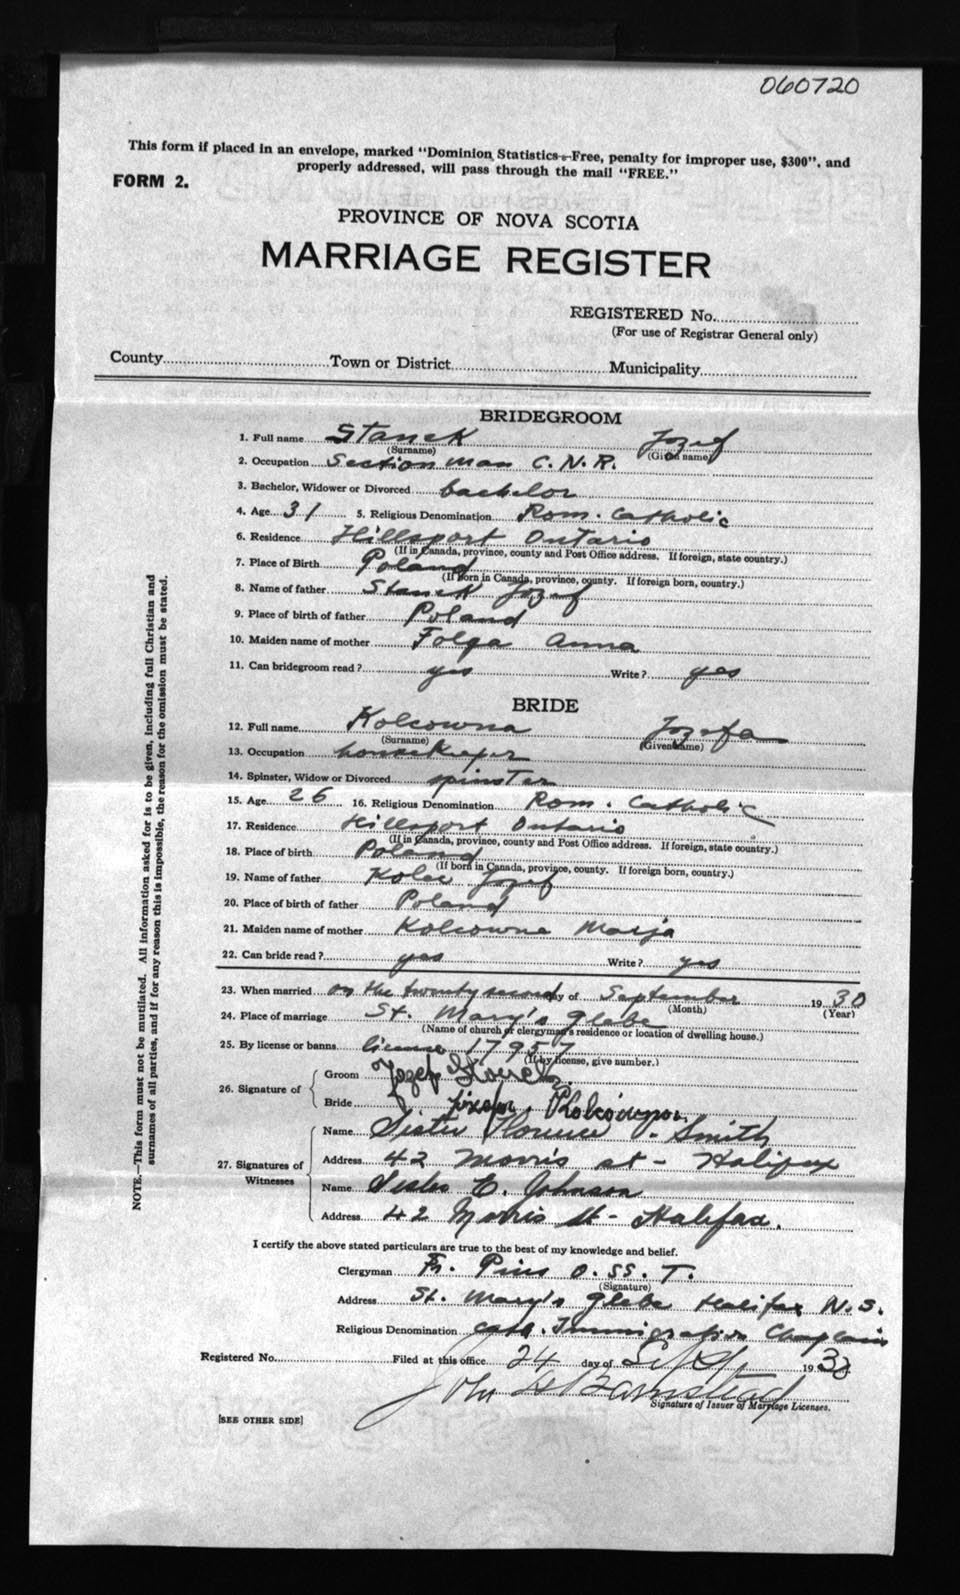 060720
This form if placed in an envelope, marked "Dominion Statistics—Free, penalty for improper use, $300", and
properly addressed, will pass through the mail "FREE."
FORM 2.
PROVINCE OF NOVA SCOTIA
MARRIAGE REGISTER
REGISTERED No.
(For use of Registrar General only)
County Town or District Municipality
BRIDEGROOM
1. Full name Stanek Jozef
(Surname) (Given name)
2. Occupation Section man C.N.R.
3. Bachelor, Widower or Divorced bachelor
4. Age 31 5. Religious Denomination Rom. Catholic
6. Residence Hillsport Ontario
(If in Canada, province, county and Post Office address. If foreign, state country.)
7. Place of Birth Poland
(If Born in Canada, province, county. If foreign born, country.)
8. Name of father Stanek Jozef
9. Place of birth of father Poland
10. Maiden name of mother Folga Anna
11. Can bridegroom read? yes Write? yes
BRIDE
12. Full name Kolcowna Jozefa
(Surname) (Given name)
13. Occupation housekeeper
14. Spinster, Widow or Divorced spinster
15. Age 26 16. Religious Denomination Rom. Catholic
17. Residence Hillsport Ontario
(If in Canada, province, county and Post Office address. If foreign, state country.)
18. Place of birth Poland
(If born in Canada, province, county. If foreign born, country.)
19. Name of father Kolec Jozef
20. Place of birth of father Poland
21. Maiden name of mother Kolcowna Marja
22. Can bride read? yes Write? yes
23. When married on the twenty second day of September 1930
(Month) (Year)
24. Place of marriage St. Mary's Glebe
(Name of church or clergyman's residence or location of dwelling house.)
25. By license or banns license 17957
(If by license, give number.)
26. Signature of Groom Jozef Stanek
Bride
27. Signatures of Witnesses Name Sister Florence J. Smith
Address 42 Morris st - Halifax
Name E. Johnson
Address 42 Morris St - Halifax.
I certify the above stated particulars are true to the best of my knowledge and belief.
Clergyman Fr. Pius O.SS.T.
(Signature)
Address St. Mary's Glebe Halifax N.S.
Religious Denomination Cath. Immigration Chaplain
Registered No. Filed at this office 24 day of Sept 1930
John Barnstead
Signature of Issuer of Marriage Licenses.
[SEE OTHER SIDE]
NOTE.—This form must not be mutilated. All information asked for is to be given, including full Christian and
surnames of all parties, and if for any reason this is impossible, the reason for the omission must be stated.